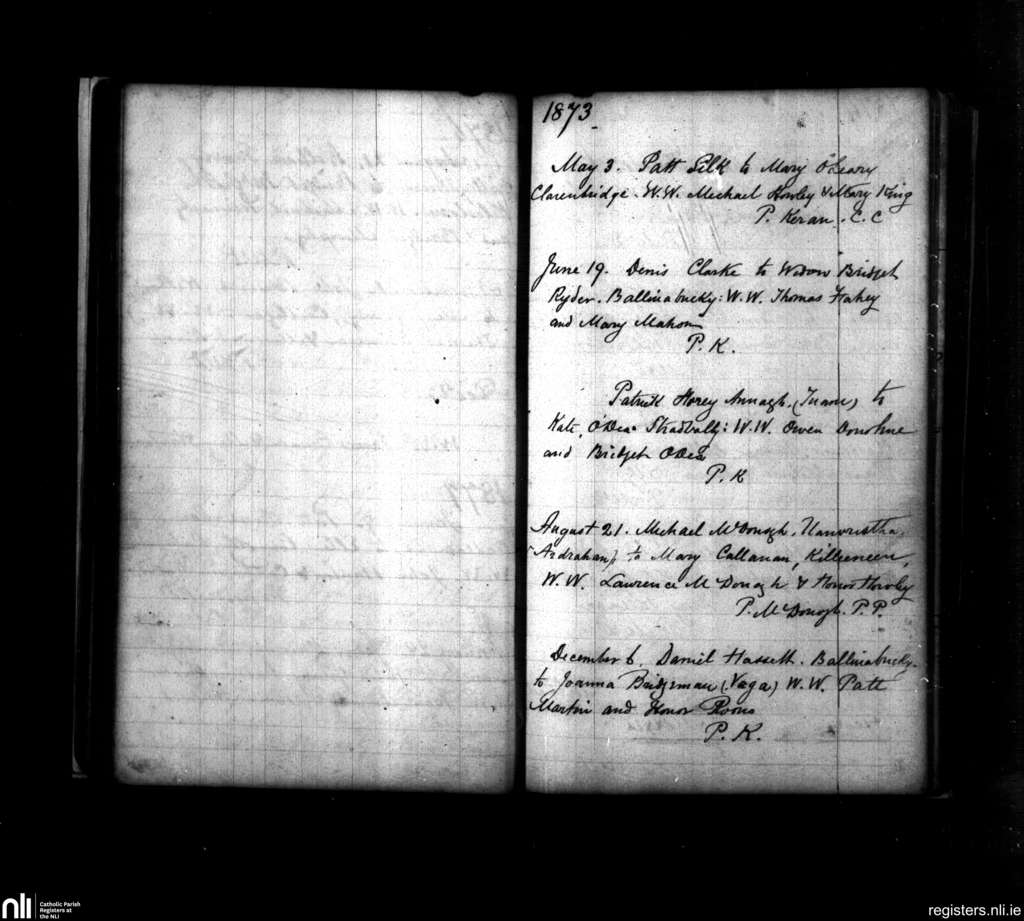 1873
May 3. Patt Silk to Mary O'Leary
Clarenbridge. W.W. Michael Howley & Mary King
P. Keran. C.C
June 19. Denis Clarke to Widow Bridget
Ryder. Ballinabucky: W.W. Thomas Fahey
and Mary Mahon
P. K.
Patrick Horey Annagh. (Tuam) to
Kate O'Dea Stradbally: W.W. Owen Donohue
and Bridget O'Dea
P. K
August 21. Michael McDonogh,
Ardrahan) to Mary Callanan, Killeeneen,
W.W. Lawrence McDonogh & Honor Howley
P. McDonogh. P.P.
December 6, Daniel Hassett. Ballinabucky
to Joanna Bridgman (Vaga) W.W. Patt
Martin and Honor
P. K.
nli
Catholic Parish
Registers at
the NLI
registers.nli.ie